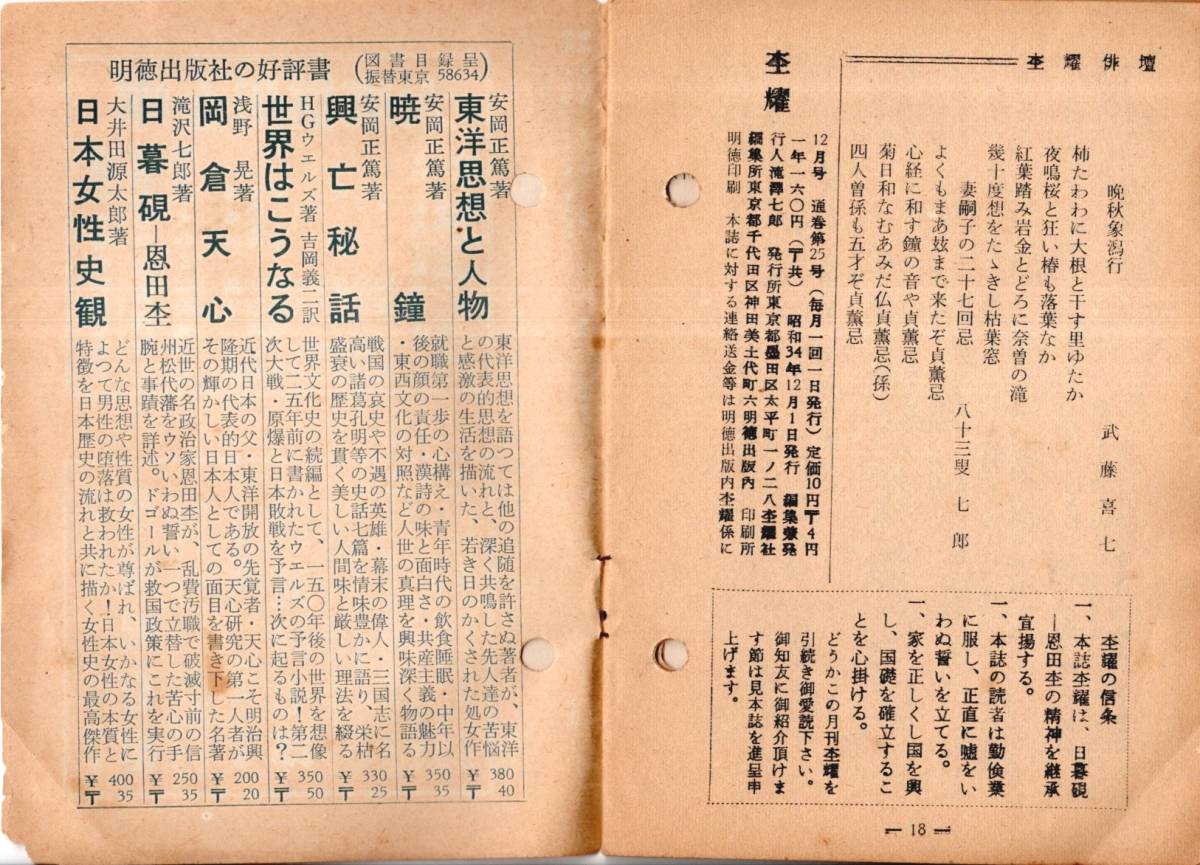 杢耀俳壇
晩秋象潟行
武藤喜七
柿たわわに大根と干す里ゆたか
夜鳴桜と狂い椿も落葉なか
紅葉踏み岩金とどろに奈曽の滝
幾十度想をたゝきし枯葉窓
妻嗣子の二十七回忌
八十三叟 七郎
よくもまあ玆まで来たぞ貞薫忌
心経に和す鐘の音や貞薫忌
菊日和なむあみだ仏貞薫忌(孫)
四人曽孫も五才ぞ貞薫忌
杢耀
12月号 通巻第25号(毎月一回一日発行)定価10円〒4円
一年一六〇円(〒共) 昭和34年12月1日発行 編集兼発
行人滝澤七郎 発行所東京都墨田区太平町一ノ二八杢耀社
編集所東京都千代田区神田美土代町六明徳出版内 印刷所
明徳印刷 本誌に対する連絡送金等は明徳出版内杢耀係に
杢耀の信条
一、本誌杢耀は、日暮硯
―恩田杢の精神を継承
宣揚する。
一、本誌の読者は勤倹業
に服し、正直に嘘をい
わぬ誓いを立てる。
一、家を正しくし国を興
し、国礎を確立するこ
とを心掛ける。
どうかこの月刊杢耀を
引続き御愛読下さい。
御知友に御紹介頂けま
す節は見本誌を進呈申
上げます。
― 18 ―
明徳出版社の好評書
(図書目録呈
振替東京 58634)
安岡正篤著
東洋思想と人物
東洋思想を語つては他の追随を許さぬ著者が、東洋
の代表的思想の流れと、深く共鳴した先人達の苦悩
と感激の生活を描いた、若き日のかくされた処女作
¥380
〒40
安岡正篤著
暁鐘
就職第一歩の心構え・青年時代の飲食睡眠・中年以
後の顔の責任・漢詩の味と面白さ・共産主義の魅力
・東西文化の対照など人世の真理を興味深く物語る
¥350
〒35
安岡正篤著
興亡秘話
戦国の哀史や不遇の英雄・幕末の偉人・三国志に名
高い諸葛孔明等の史話七篇を情味豊かに語り、栄枯
盛衰の歴史を貫く美しい人間味と厳しい理法を綴る
¥330
〒25
HGウエルズ著 吉岡義二訳
世界はこうなる
世界文化史の続編として、一五〇年後の世界を想像
して二五年前に書かれたウエルズの予言小説!第二
次大戦・原爆と日本敗戦を予言…次に起るものは?
¥350
〒50
浅野晃著
岡倉天心
近代日本の父・東洋開放の先覚者・天心こそ明治興
隆期の代表的日本人である。天心研究の第一人者が
その輝かしい日本人としての面目を書き下した名著
¥200
〒20
滝沢七郎著
日暮硯―恩田杢
近世の名政治家恩田杢が、乱費汚職で破滅寸前の信
州松代藩をウソいわぬ誓い一つで立替した苦心の手
腕と事蹟を詳述。ドゴールが救国政策にこれを実行
¥250
〒35
大井田源太郎著
日本女性史観
どんな思想や性質の女性が尊ばれ、いかなる女性に
よつて男性の堕落は救われたか!日本女性の本質と
特徴を日本歴史の流れと共に描く女性史の最高傑作
¥400
〒35